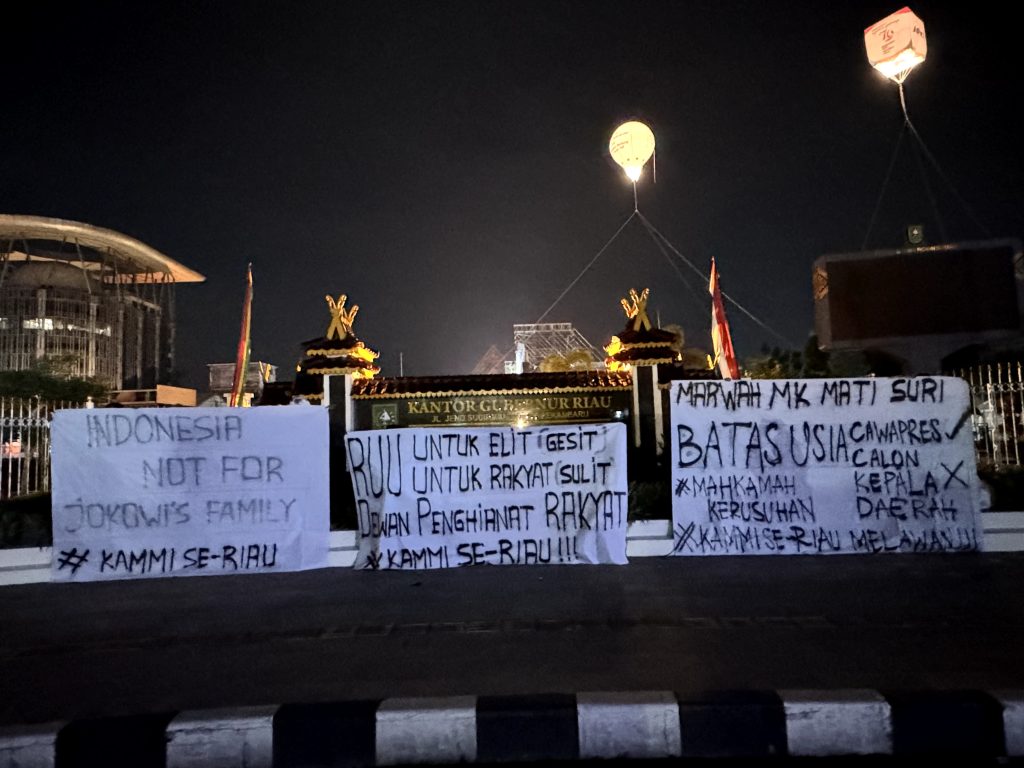 KANTOR GUBERNUR RIAU
INDONESIA
NOT FOR
JOKOWI'S FAMILY
# KAMMI SE-RIAU
RUU UNTUK ELIT (GESIT)
UNTUK RAKYAT (SULIT
DEWAN PENGHIANAT RAKYAT
#KAMMI SE-RIAU!!!
MARWAH MK MATI SURI
BATAS USIA CAWAPRES ✓
CALON
KEPALA X
DAERAH
#MAHKAMAH
KERUSUHAN
#KAMMI SE-RIAU MELAWAN!!!